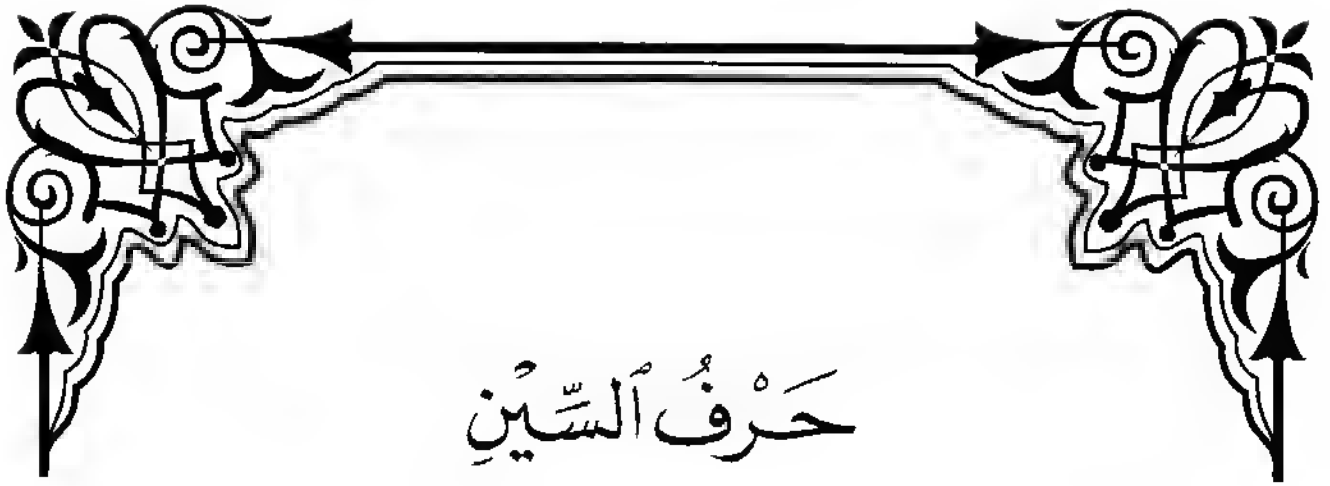 حَرْفُ ٱلسِّيْنِ